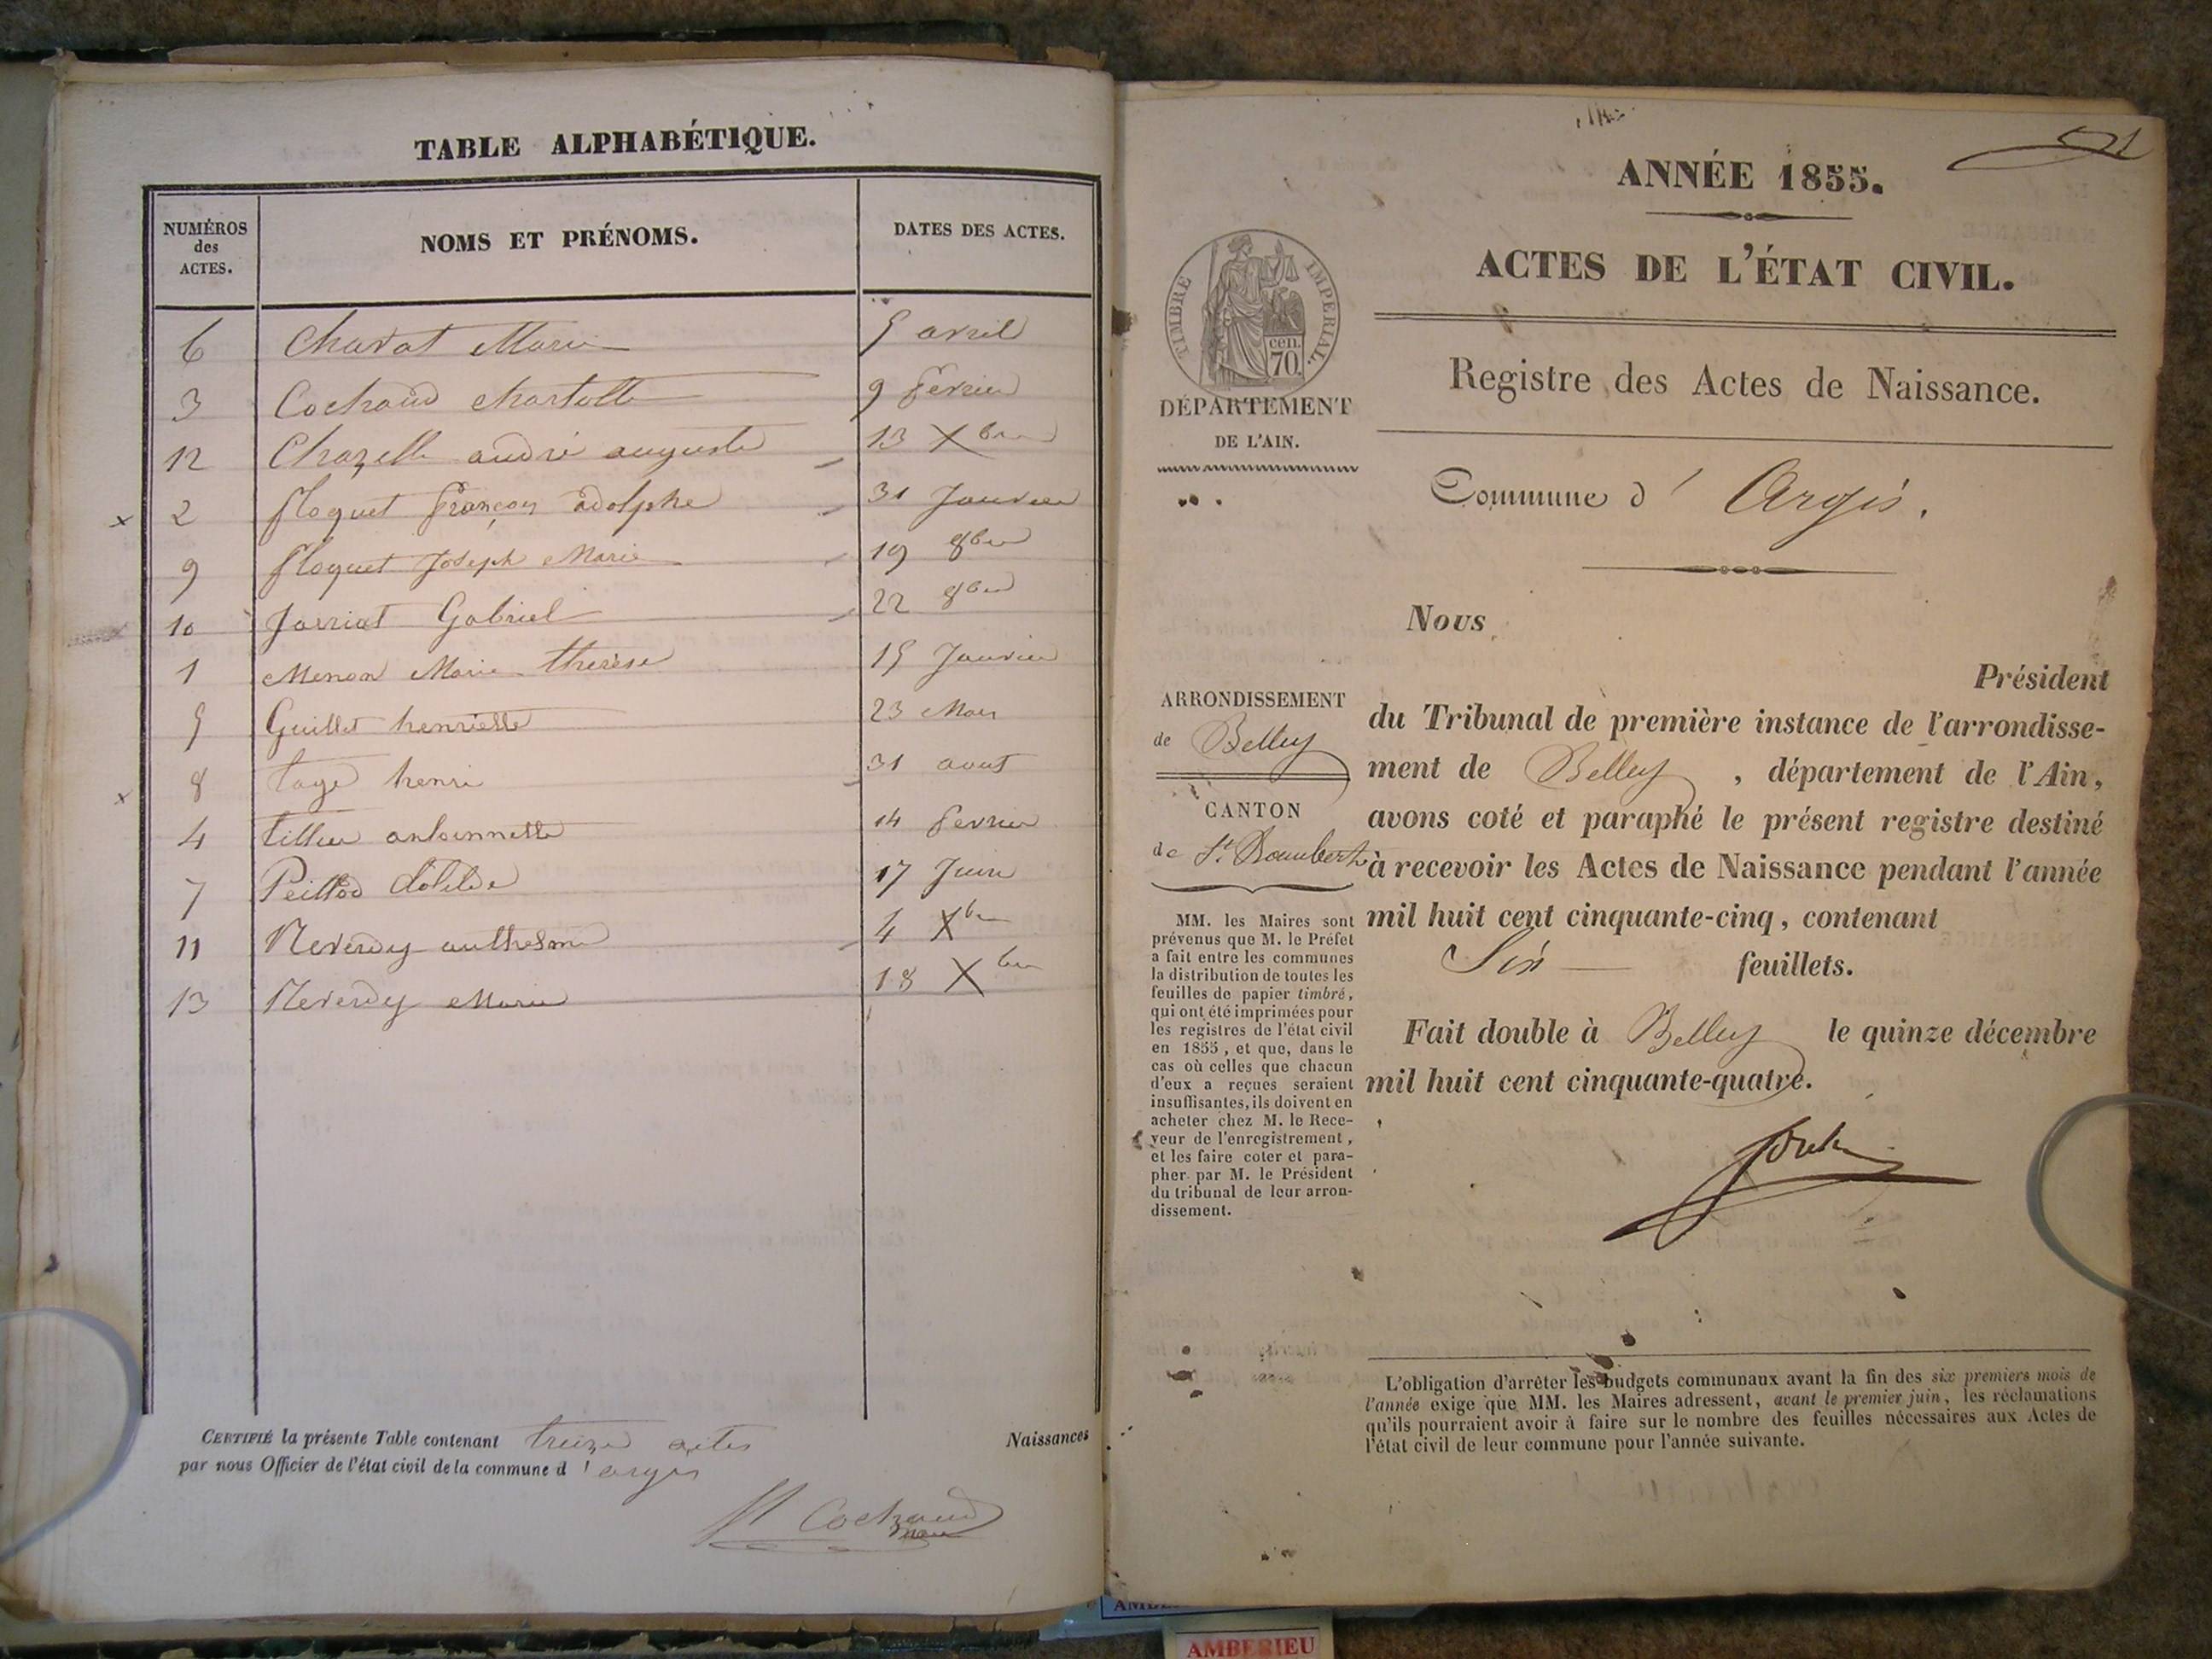 TABLE ALPHABÉTIQUE.
NUMÉROS des ACTES. NOMS ET PRÉNOMS. DATES DES ACTES.
6 Charvat Marie 5 avril
3 Cochaud charlotte 9 fevrier
12 Chazelle andré auguste 13 Xbre
2 floquet françois adolphe 31 Janvier
9 floquet Joseph Marie 19 8bre
10 Jarriat Gabriel 22 8bre
1 Menon Marie thérèse 15 Janvier
5 Guillet henriette 23 Mars
8 tage henri 31 aout
4 antoinnette 14 fevrier
7 Peillod 17 Juin
11 Reverdy anthelme 4 Xbre
13 Reverdy Marie 18 Xbre
CERTIFIÉ la présente Table contenant treize actes Naissances
par nous Officier de l'état civil de la commune d' argis
Cochaud
maire
ANNÉE 1855.
ACTES DE L'ÉTAT CIVIL.
TIMBRE IMPERIAL.
cen.
70.
DÉPARTEMENT
DE L'AIN.
Registre des Actes de Naissance.
Commune d' Argis.
Nous
Président
du Tribunal de première instance de l'arrondisse-
ment de Belley, département de l'Ain,
avons coté et paraphé le présent registre destiné
à recevoir les Actes de Naissance pendant l'année
mil huit cent cinquante-cinq, contenant
Six feuillets.
Fait double à Belley le quinze décembre
mil huit cent cinquante-quatre.
ARRONDISSEMENT
de Belley
CANTON
de St. Rambert
MM. les Maires sont
prévenus que M. le Préfet
a fait entre les communes
la distribution de toutes les
feuilles de papier timbré,
qui ont été imprimées pour
les registres de l'état civil
en 1855, et que, dans le
cas où celles que chacun
d'eux a reçues seraient
insuffisantes, ils doivent en
acheter chez M. le Rece-
veur de l'enregistrement,
et les faire coter et para-
pher par M. le Président
du tribunal de leur arron-
dissement.
L'obligation d'arrêter les budgets communaux avant la fin des six premiers mois de
l'année exige que MM. les Maires adressent, avant le premier juin, les réclamations
qu'ils pourraient avoir à faire sur le nombre des feuilles nécessaires aux Actes de
l'état civil de leur commune pour l'année suivante.
AMBERIEU